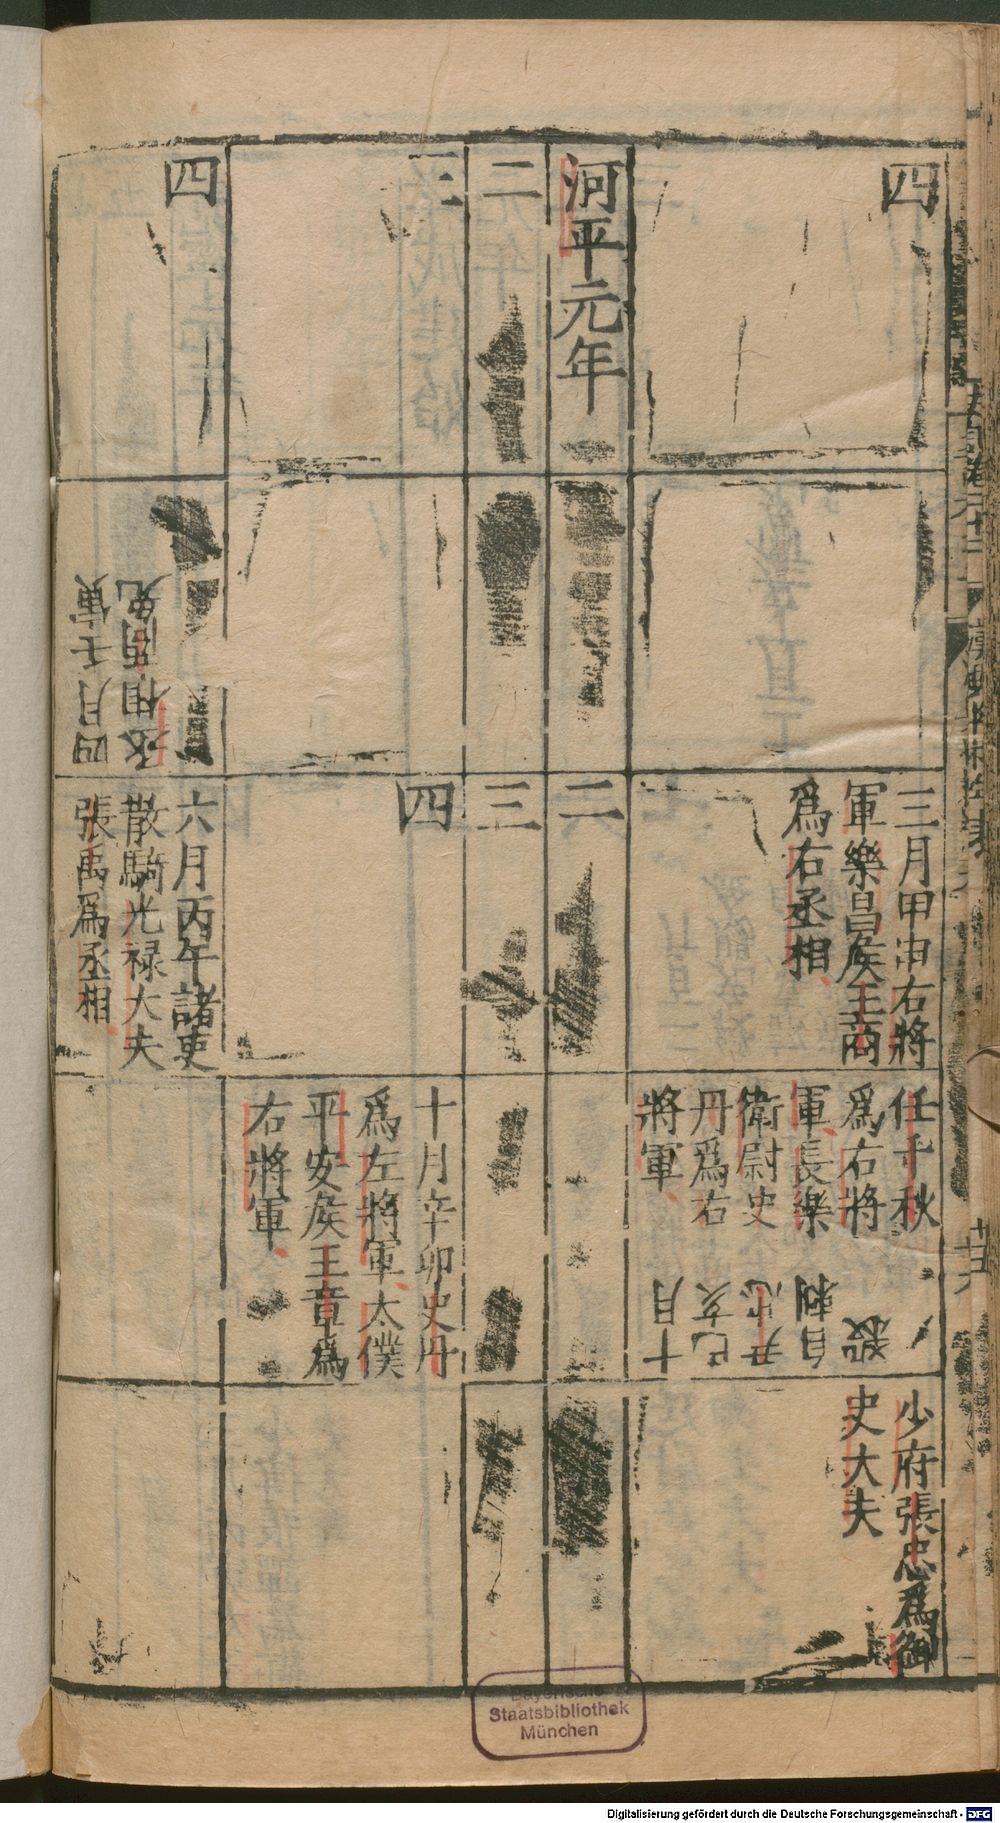 四
三月甲申右將
軍樂昌侯王商
爲右丞相
任千秋
爲右將
軍長樂
衛尉史
丹爲右
將軍
十月
己亥
尹忠
自刺
殺
少府張忠爲御
史大夫
河平元年
二
二
三
三
四
十月辛卯史丹
爲左將軍太僕
平安侯王章爲
右將軍
四
四月壬寅
丞相商免
六月丙午諸吏
散騎光禄大夫
張禹爲丞相
Bayerische
Staatsbibliothek
München
Digitalisierung gefördert durch die Deutsche Forschungsgemeinschaft - DFG